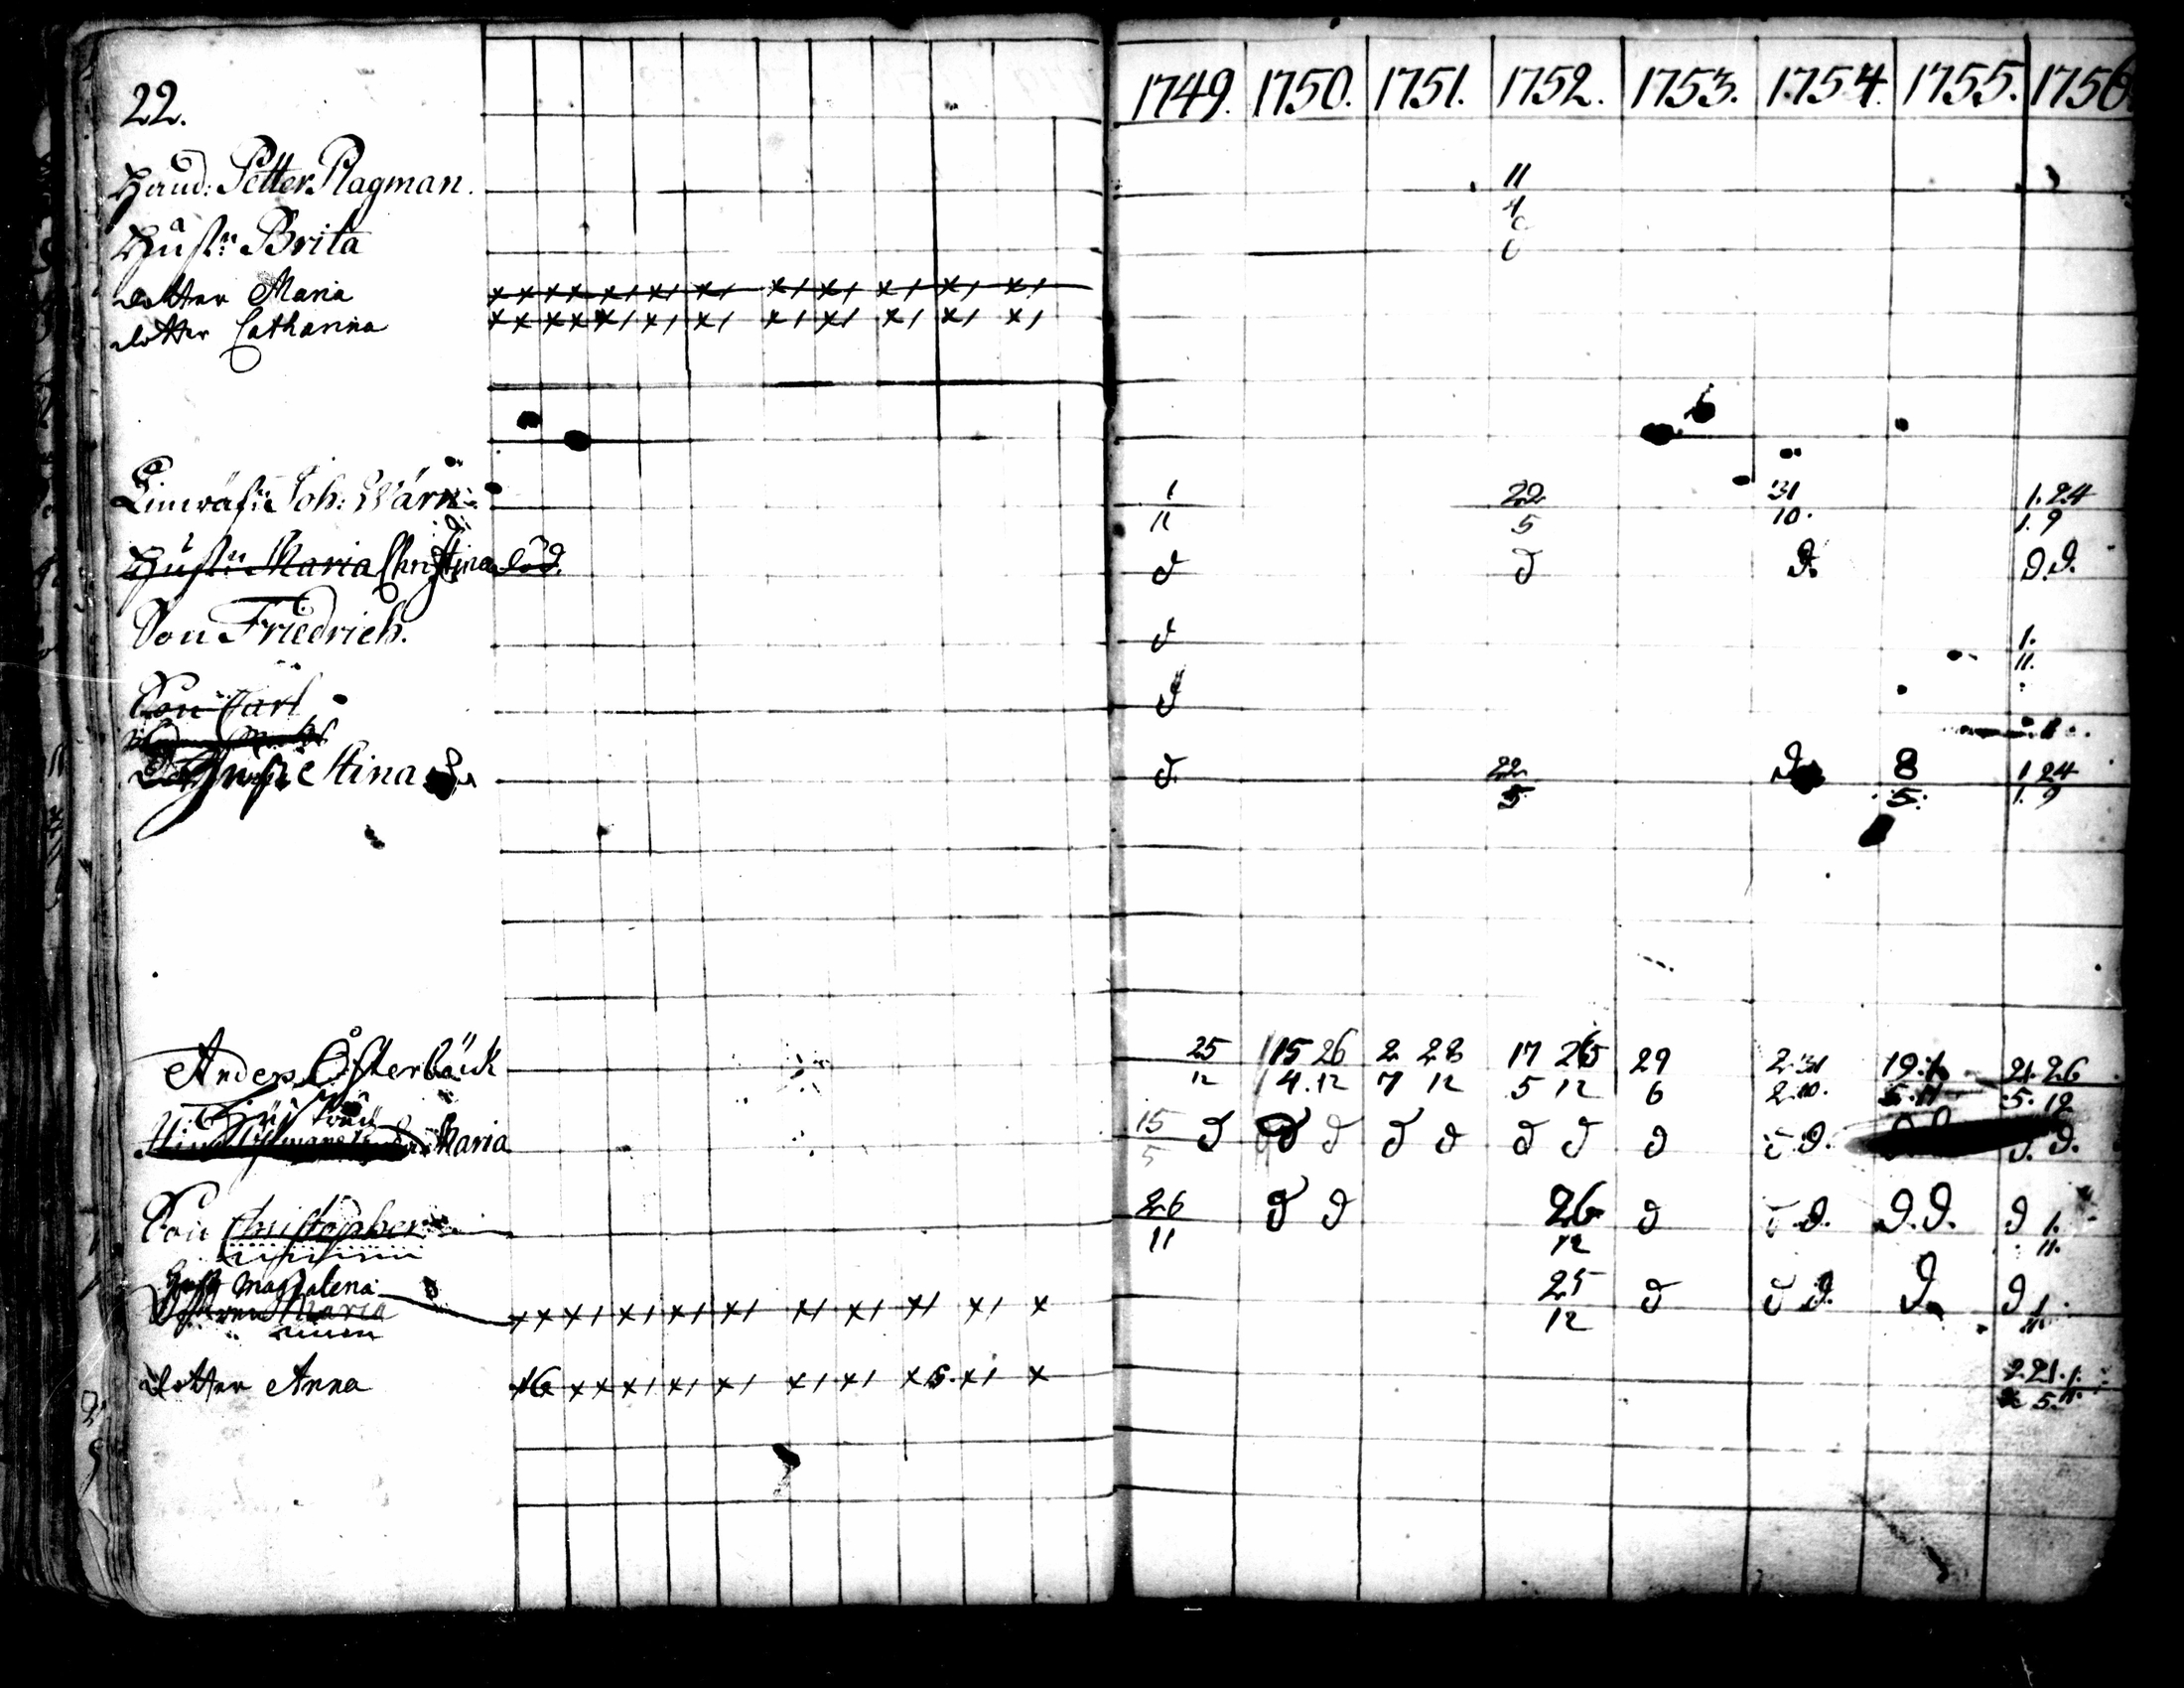 22. 1749. 1750. 1751. 1752. 1753. 1754. 1755. 1756.
Petter Plagman. 11
Hustr: Brita 4
dotter Maria x x x x x / x / x / x / x / x / x / x /
dotter Catharina x x x x x / x / x / x / x / x / x / x /
Joh: Wärn 1 22 31 1. 24
11 5 10. 1. 9
Hustr: Maria Christina död. d d d. d. d.
Son Friedrich. d 1.
11.
Son Carl d
Stina d. 22 8 1 24
5 5. 1. 9
Anders Österbäck 25 15 26 2 28 17 26 29 2 31 19. 21. 26
12 4. 12 7 12 5 12 6 2 10. 5. 11 5. 12
Maria 15 d d d d d d d d d d. d. d.
5
Son Christopher 26 d d 26 d d d. d. d. d 1.
11 12 11.
Hust Magdalena 25 d d d. d. d 1.
Maria x x x / x / x / x / x / x / x / x / x 12 11
dotter Anna 16 x x x / x / x / x / x / x 6. x / x 2. 21. 1.
2 5. 11.